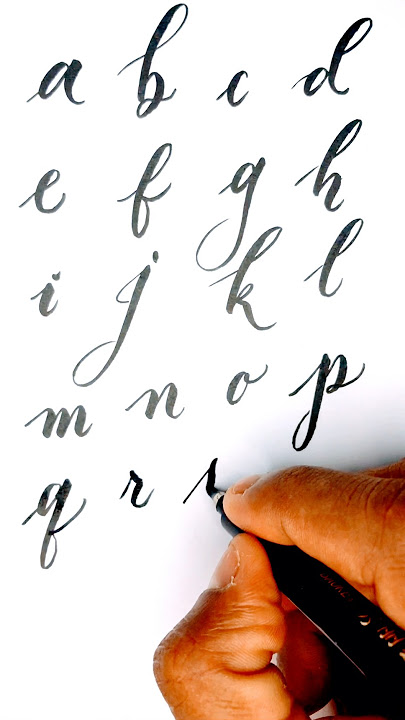 a b c d
e f g h
i j k l
m n o p
q r